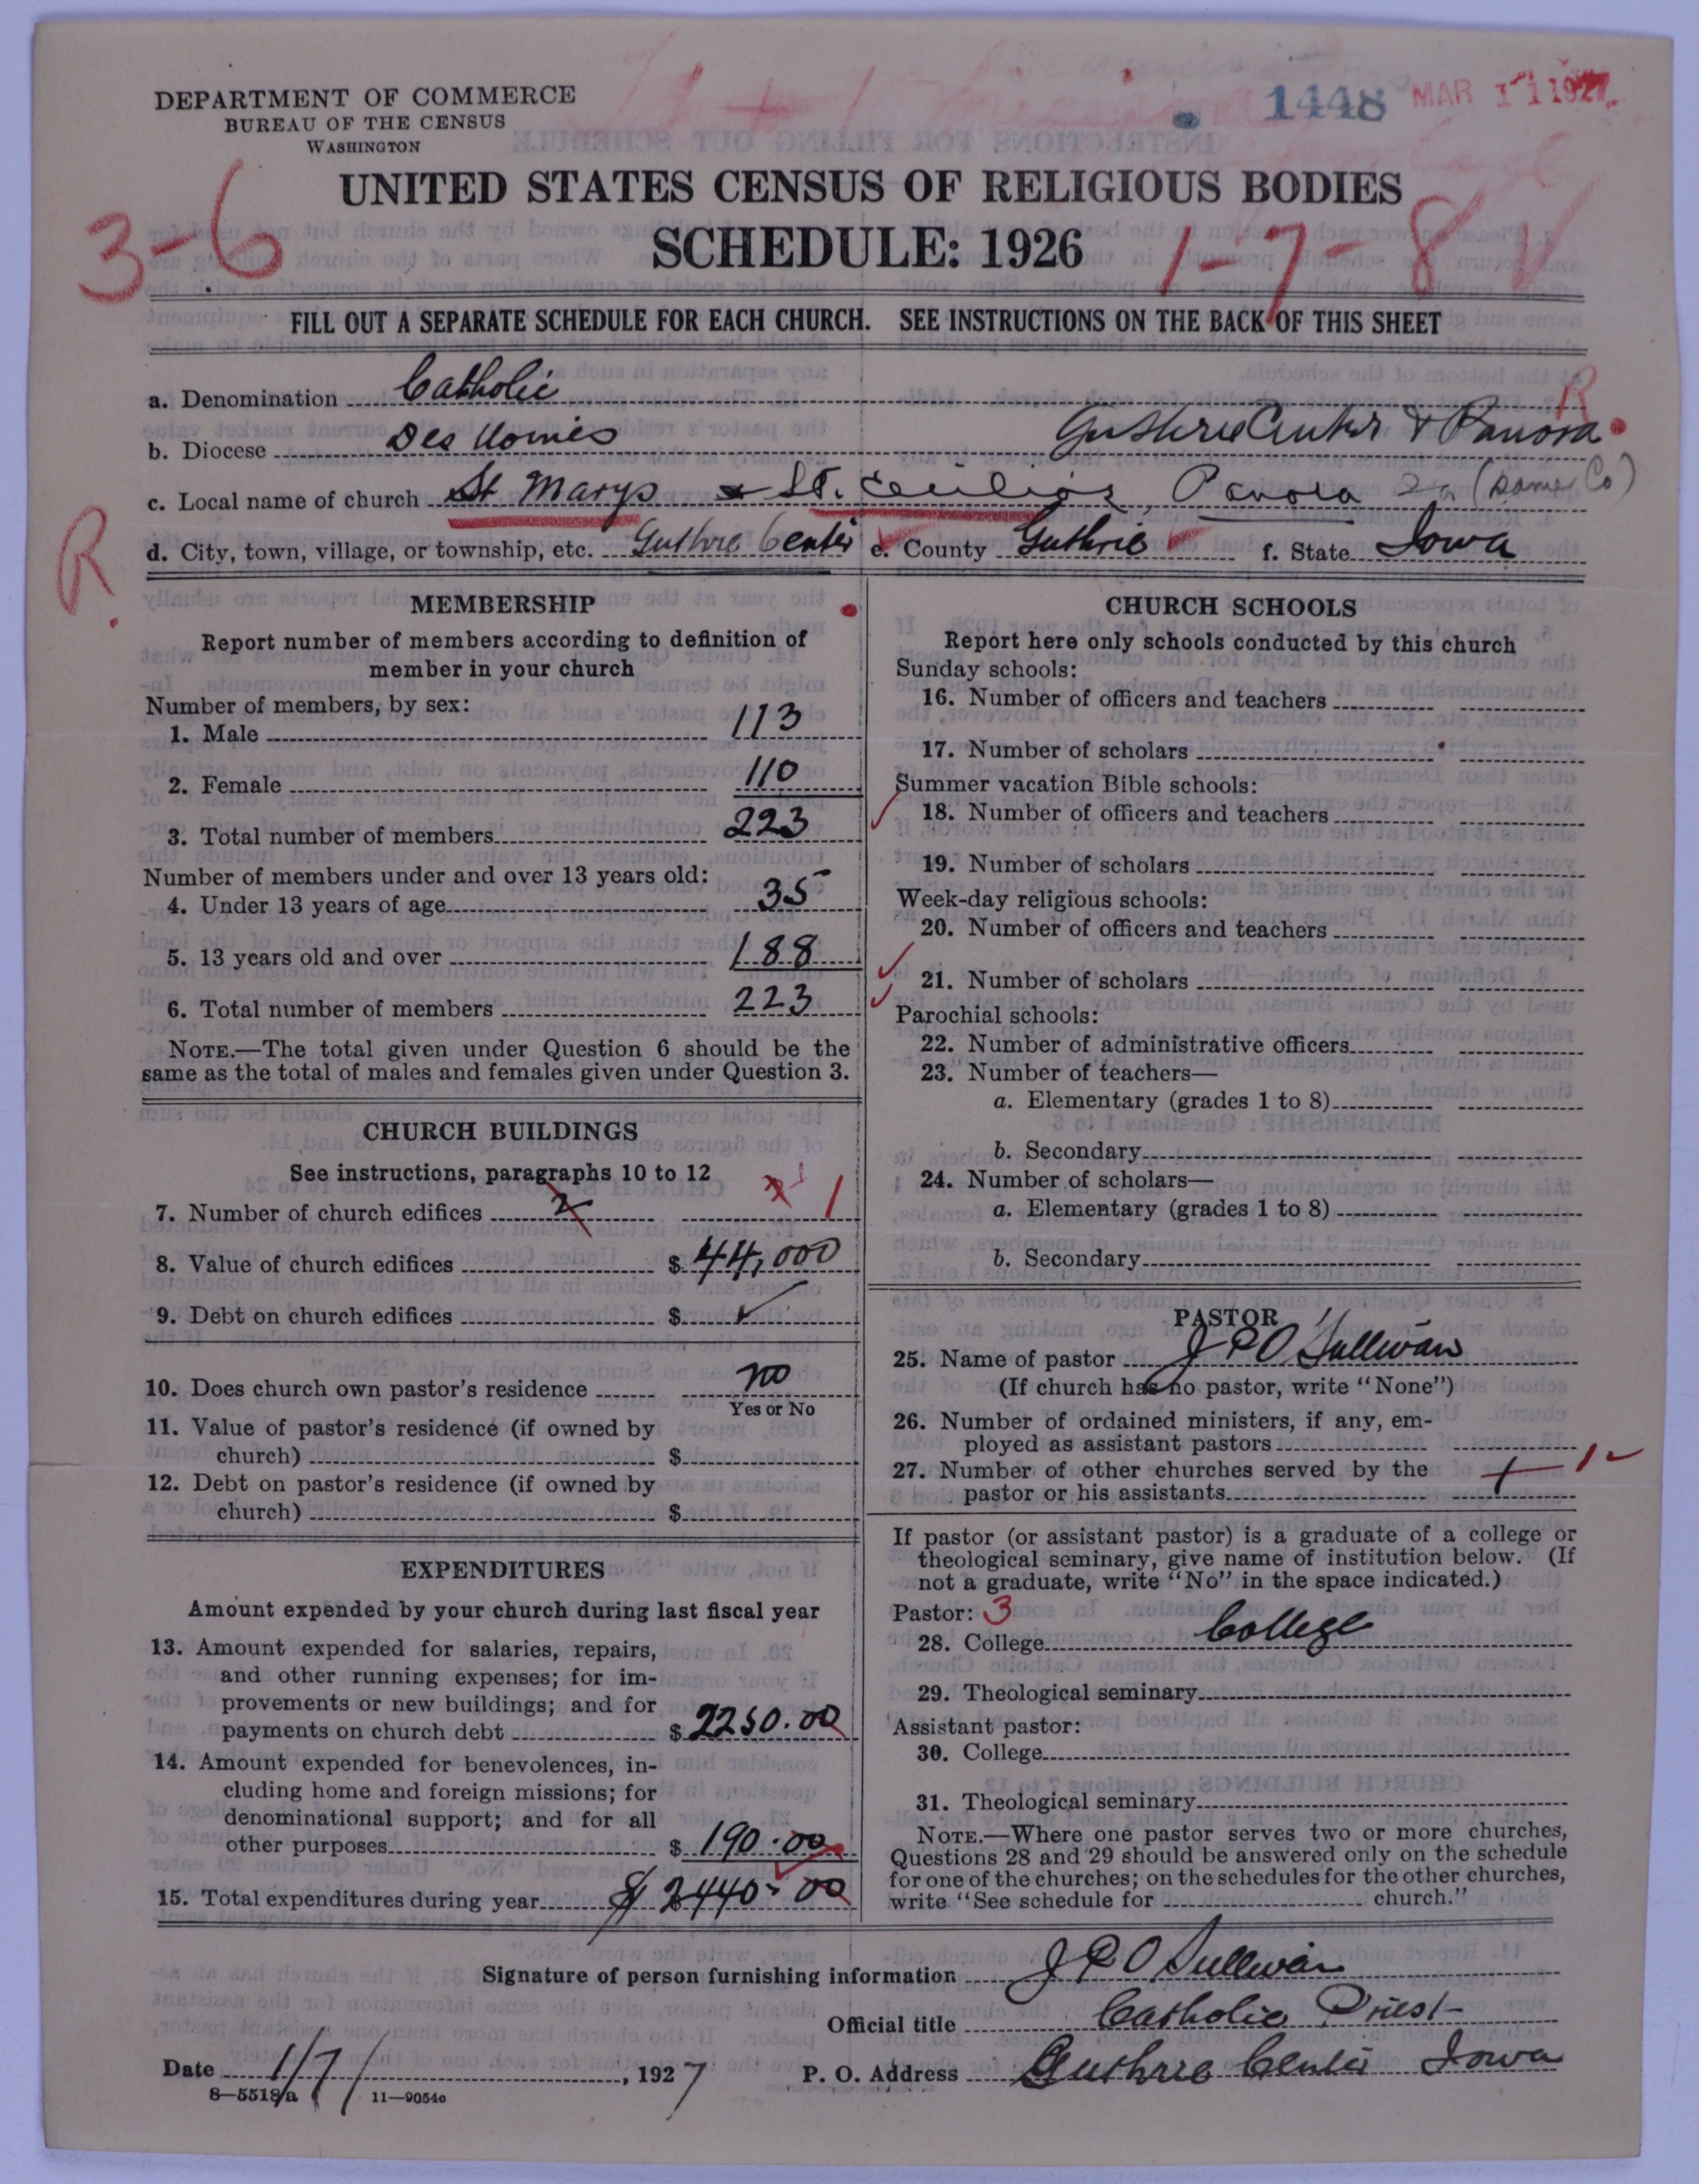 DEPARTMENT OF COMMERCE
BUREAU OF THE CENSUS
WASHINGTON
1448 MAR 11 1927
UNITED STATES CENSUS OF RELIGIOUS BODIES
3-6
SCHEDULE: 1926
1-7-8
FILL OUT A SEPARATE SCHEDULE FOR EACH CHURCH. SEE INSTRUCTIONS ON THE BACK OF THIS SHEET
a. Denomination Catholic
R
b. Diocese Des Moines Guthrie Center & Panora
c. Local name of church St Marys & St. Cecilias, Panora Ia (same Co)
R.
d. City, town, village, or township, etc. Guthrie Center e. County Guthrie f. State Iowa
MEMBERSHIP
Report number of members according to definition of
member in your church
Number of members, by sex:
1. Male 113
2. Female 110
3. Total number of members 223
Number of members under and over 13 years old:
4. Under 13 years of age 35
5. 13 years old and over 188
6. Total number of members 223
NOTE.—The total given under Question 6 should be the
same as the total of males and females given under Question 3.
CHURCH BUILDINGS
See instructions, paragraphs 10 to 12
7. Number of church edifices 2 1
8. Value of church edifices $ 44,000
9. Debt on church edifices $ ✓
10. Does church own pastor's residence no
Yes or No
11. Value of pastor's residence (if owned by
church) $
12. Debt on pastor's residence (if owned by
church) $
EXPENDITURES
Amount expended by your church during last fiscal year
13. Amount expended for salaries, repairs,
and other running expenses; for im-
provements or new buildings; and for
payments on church debt $ 2250.00
14. Amount expended for benevolences, in-
cluding home and foreign missions; for
denominational support; and for all
other purposes $ 190.00
15. Total expenditures during year $ 2440.00
CHURCH SCHOOLS
Report here only schools conducted by this church
Sunday schools:
16. Number of officers and teachers
17. Number of scholars
Summer vacation Bible schools:
18. Number of officers and teachers
19. Number of scholars
Week-day religious schools:
20. Number of officers and teachers
21. Number of scholars
Parochial schools:
22. Number of administrative officers
23. Number of teachers—
a. Elementary (grades 1 to 8)
b. Secondary
24. Number of scholars—
a. Elementary (grades 1 to 8)
b. Secondary
PASTOR
25. Name of pastor J P O'Sullivan
(If church has no pastor, write "None")
26. Number of ordained ministers, if any, em-
ployed as assistant pastors
27. Number of other churches served by the
pastor or his assistants 1 1
If pastor (or assistant pastor) is a graduate of a college or
theological seminary, give name of institution below. (If
not a graduate, write "No" in the space indicated.)
Pastor: 3
28. College College
29. Theological seminary
Assistant pastor:
30. College
31. Theological seminary
NOTE.—Where one pastor serves two or more churches,
Questions 28 and 29 should be answered only on the schedule
for one of the churches; on the schedules for the other churches,
write "See schedule for church."
Signature of person furnishing information J P O Sullivan
Official title Catholic Priest
Date 1/7/, 1927 P. O. Address Guthrie Center Iowa
8—5518a 11—9054c